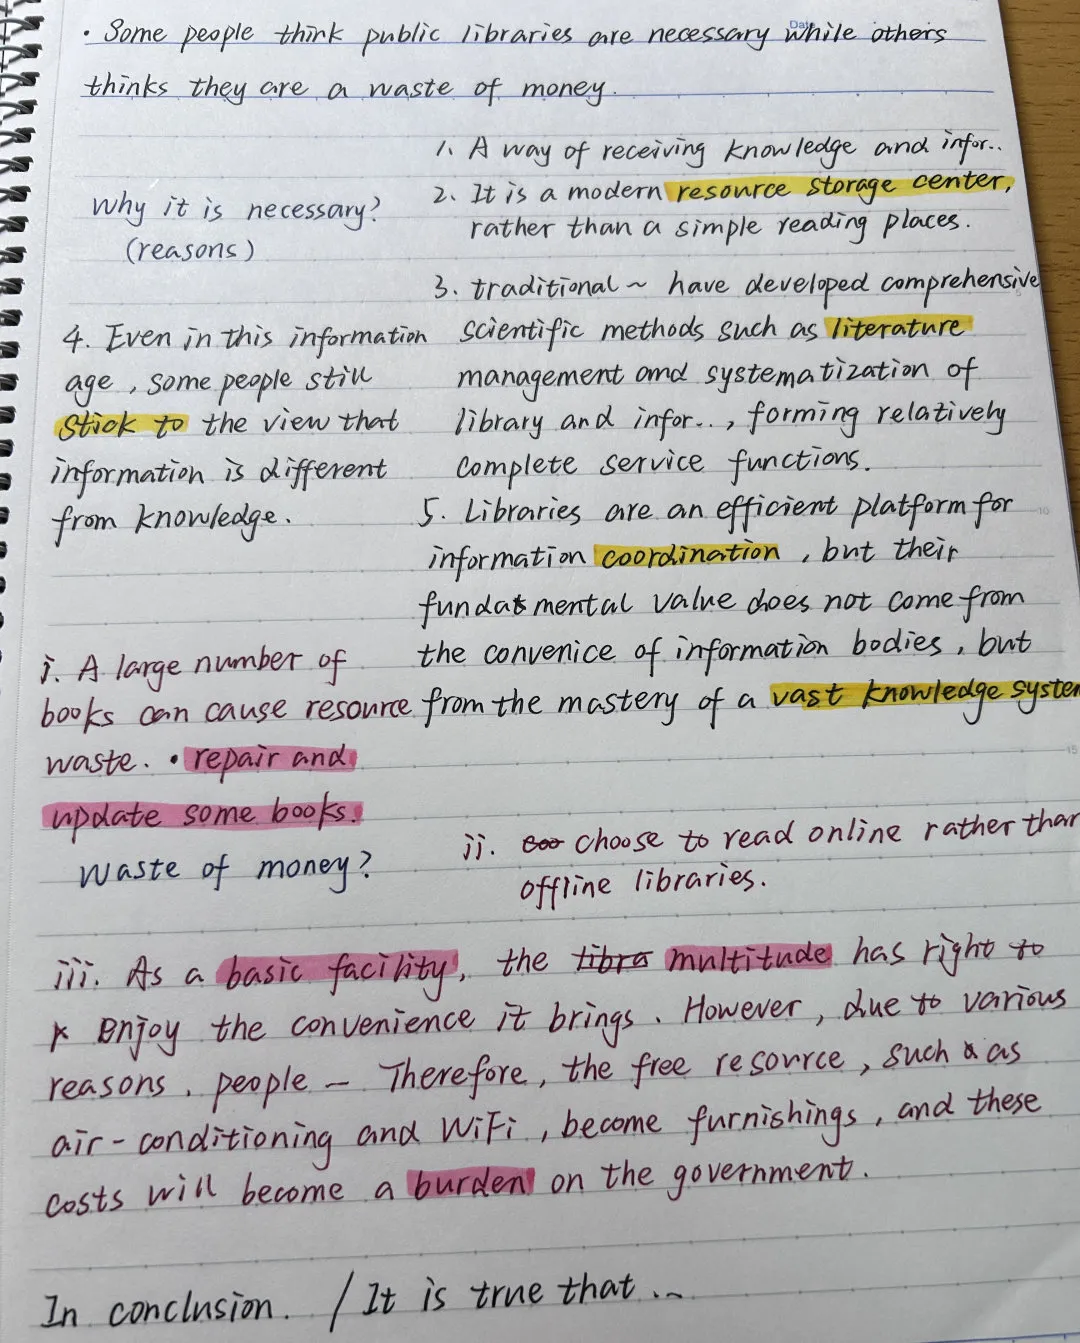 Date
· Some people think public libraries are necessary while others
thinks they are a waste of money.
Why it is necessary?
(reasons)
1. A way of receiving knowledge and infor..
2. It is a modern resource storage center,
rather than a simple reading places.
3. traditional ~ have developed comprehensive
scientific methods such as literature
management and systematization of
library and infor.., forming relatively
complete service functions.
4. Even in this information
age, some people still
stick to the view that
information is different
from knowledge.
5. Libraries are an efficient platform for
information coordination, but their
fundamental value does not come from
the convenice of information bodies, but
from the mastery of a vast knowledge system
i. A large number of
books can cause resource
waste. · repair and
update some books.
Waste of money?
ii. choose to read online rather than
offline libraries.
iii. As a basic facility, the multitude has right to
enjoy the convenience it brings. However, due to various
reasons, people — Therefore, the free resource, such as
air-conditioning and WiFi, become furnishings, and these
costs will become a burden on the government.
In conclusion. / It is true that ...
10
15